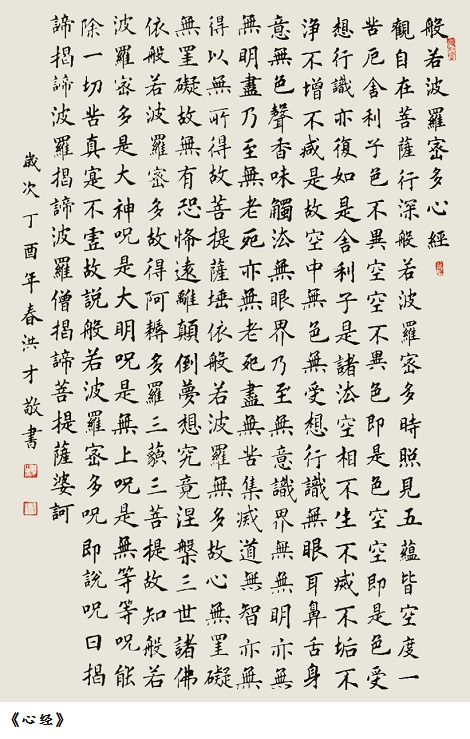 般若波羅密多心經
觀自在菩薩行深般若波羅密多時照見五蘊皆空度一
苦厄舍利子色不異空空不異色即是色空空即是色受
想行識亦復如是舍利子是諸法空相不生不滅不垢不
淨不增不减是故空中無色無受想行識無眼耳鼻舌身
意無色聲香味觸法無眼界乃至無意識界無無明亦無
無明盡乃至無老死亦無老死盡無苦集滅道無智亦無
得以無所得故菩提薩埵依般若波羅無多故心無罣礙
無罣礙故無有恐怖遠離顛倒夢想究竟涅槃三世諸佛
依般若波羅密多故得阿耨多羅三藐三菩提故知般若
波羅密多是大神呪是大明呪是無上呪是無等等呪能
除一切苦真寔不虛故說般若波羅密多呪即說呪曰揭
諦揭諦波羅揭諦波羅僧揭諦菩提薩婆訶
歲次丁酉年春洪才敬書
《心经》